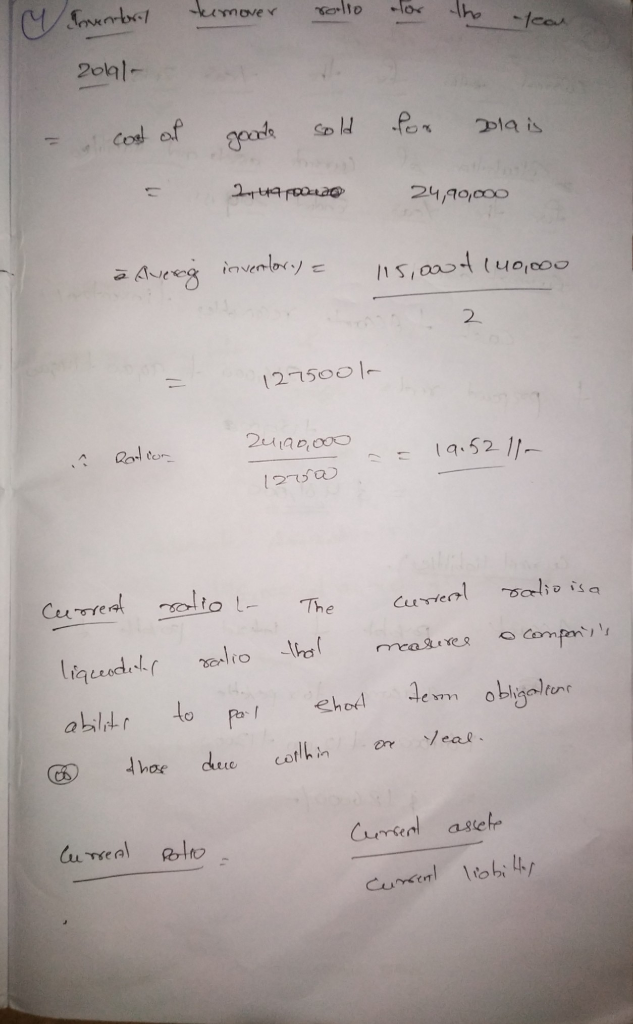 4) Inventory turnover ratio for the year
2019/-
= cost of goods sold for 2019 is
= 24,90,000
= Average inventory = 115,000 + 140,000
2
= 127500/-
∴ Ratio = 24,90,000 = = 19.52 //-
127500
Current ratio :- The current ratio is a
liquidity ratio that measures a company's
ability to pay short term obligations
or those due within one year.
Current ratio = Current assets
Current liability